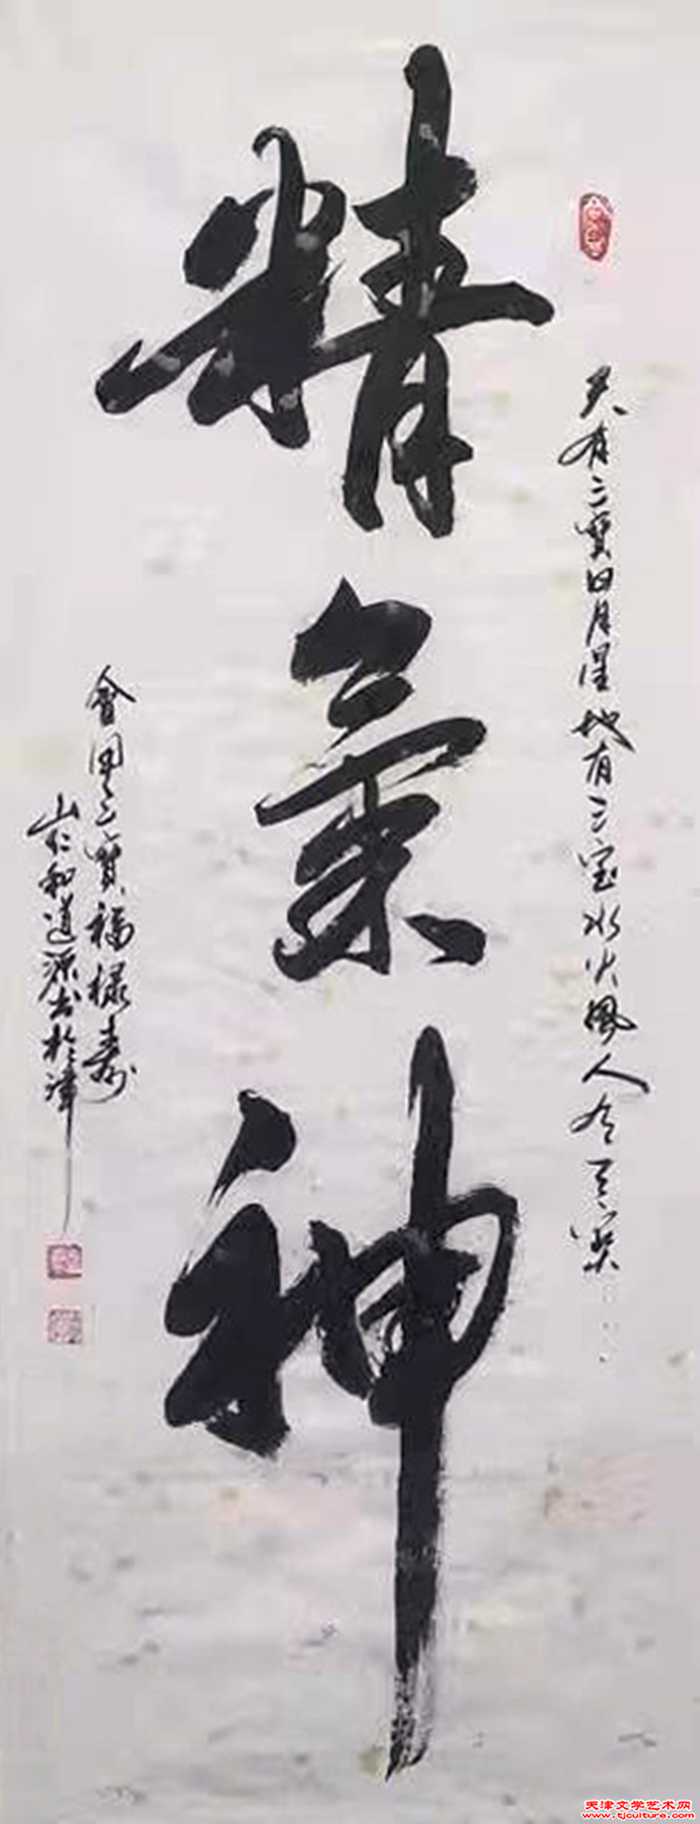 天有三寶日月星地有三宝水火風人三寶……
精氣神
會用三寶福禄壽
山仁和道源书於津
天津文学艺术网
www.tjculture.com